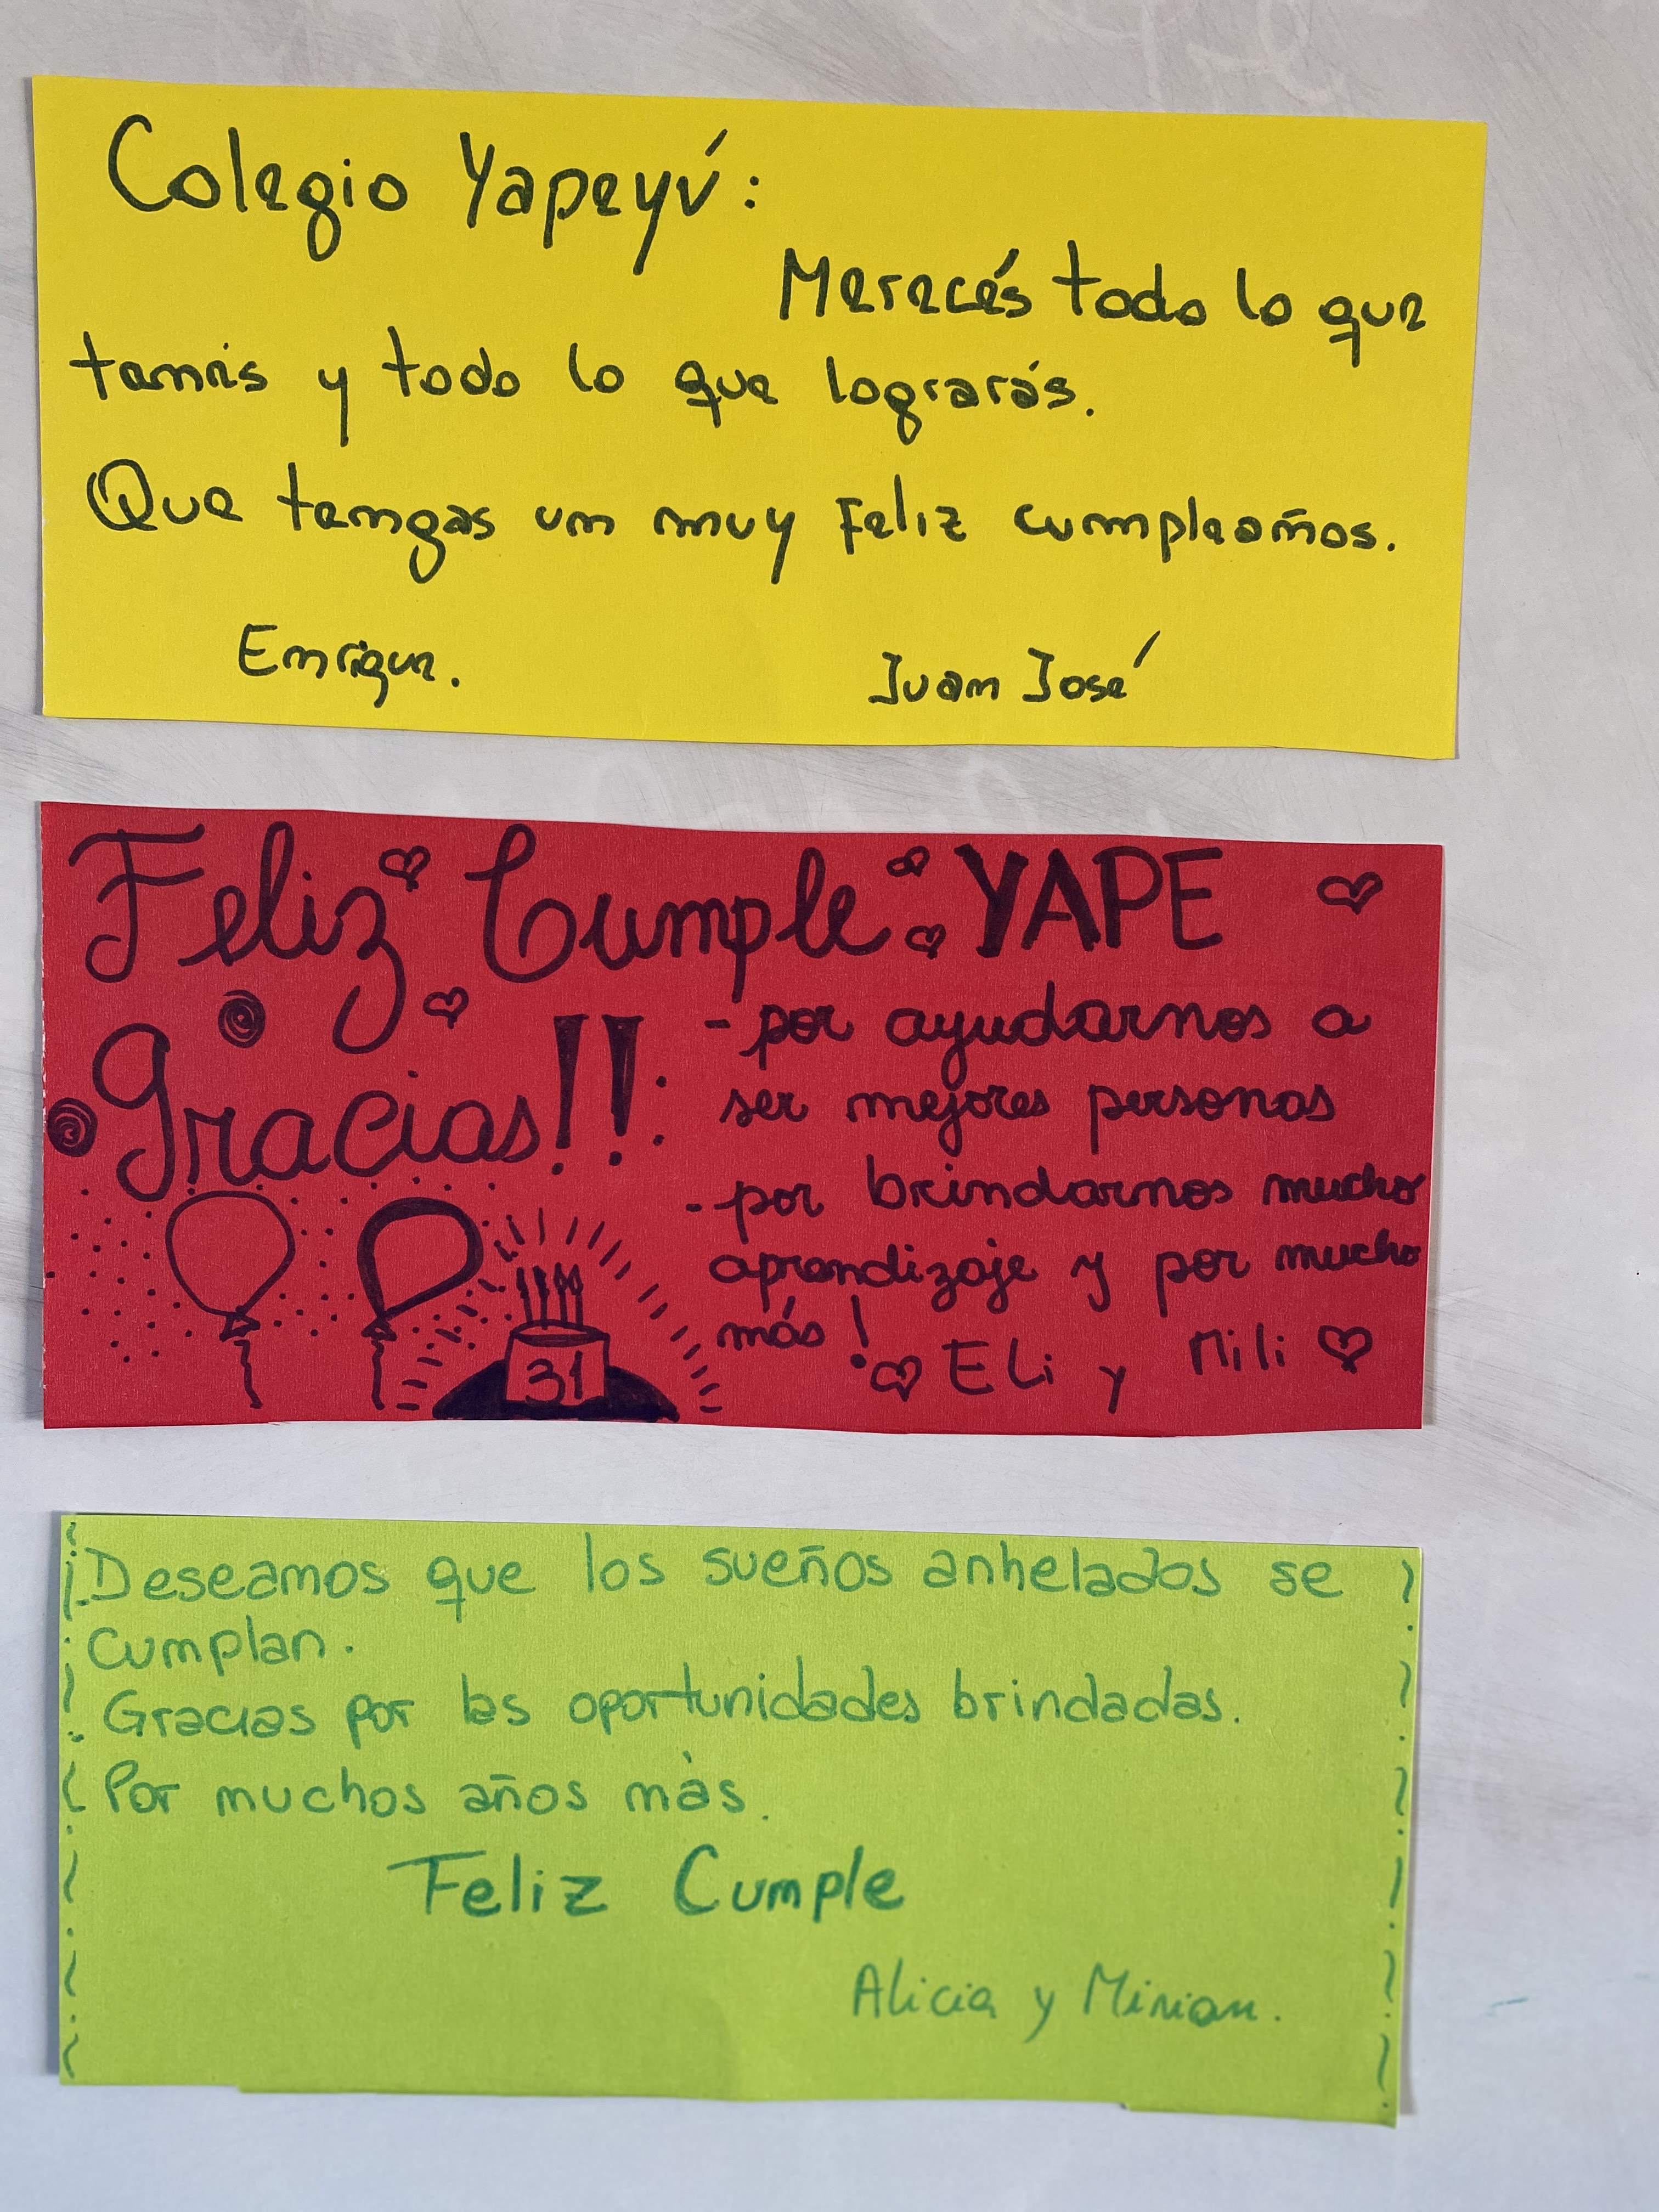 Colegio Yapeyú:
Merecés todo lo que
tenés y todo lo que lograrás.
Que tengas un muy Feliz cumpleaños.
Enrique.
Juan José
Feliz Cumple YAPE
Gracias!!:
- por ayudarnos a
ser mejores personas
- por brindarnos mucho
aprendizaje y por mucho
más!
Eli y Mili
31
Deseamos que los sueños anhelados se
cumplan.
Gracias por las oportunidades brindadas.
Por muchos años más.
Feliz Cumple
Alicia y Mirian.